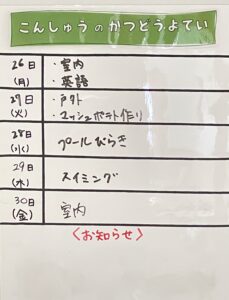 こんしゅうのかつどうよてい
26日 ・室内
(月) ・英語
27日 ・戸外
(火) ・マッシュポテト作り
28日 プールびらき
(水)
29日 スイミング
(木)
30日 室内
(金)
<お知らせ>